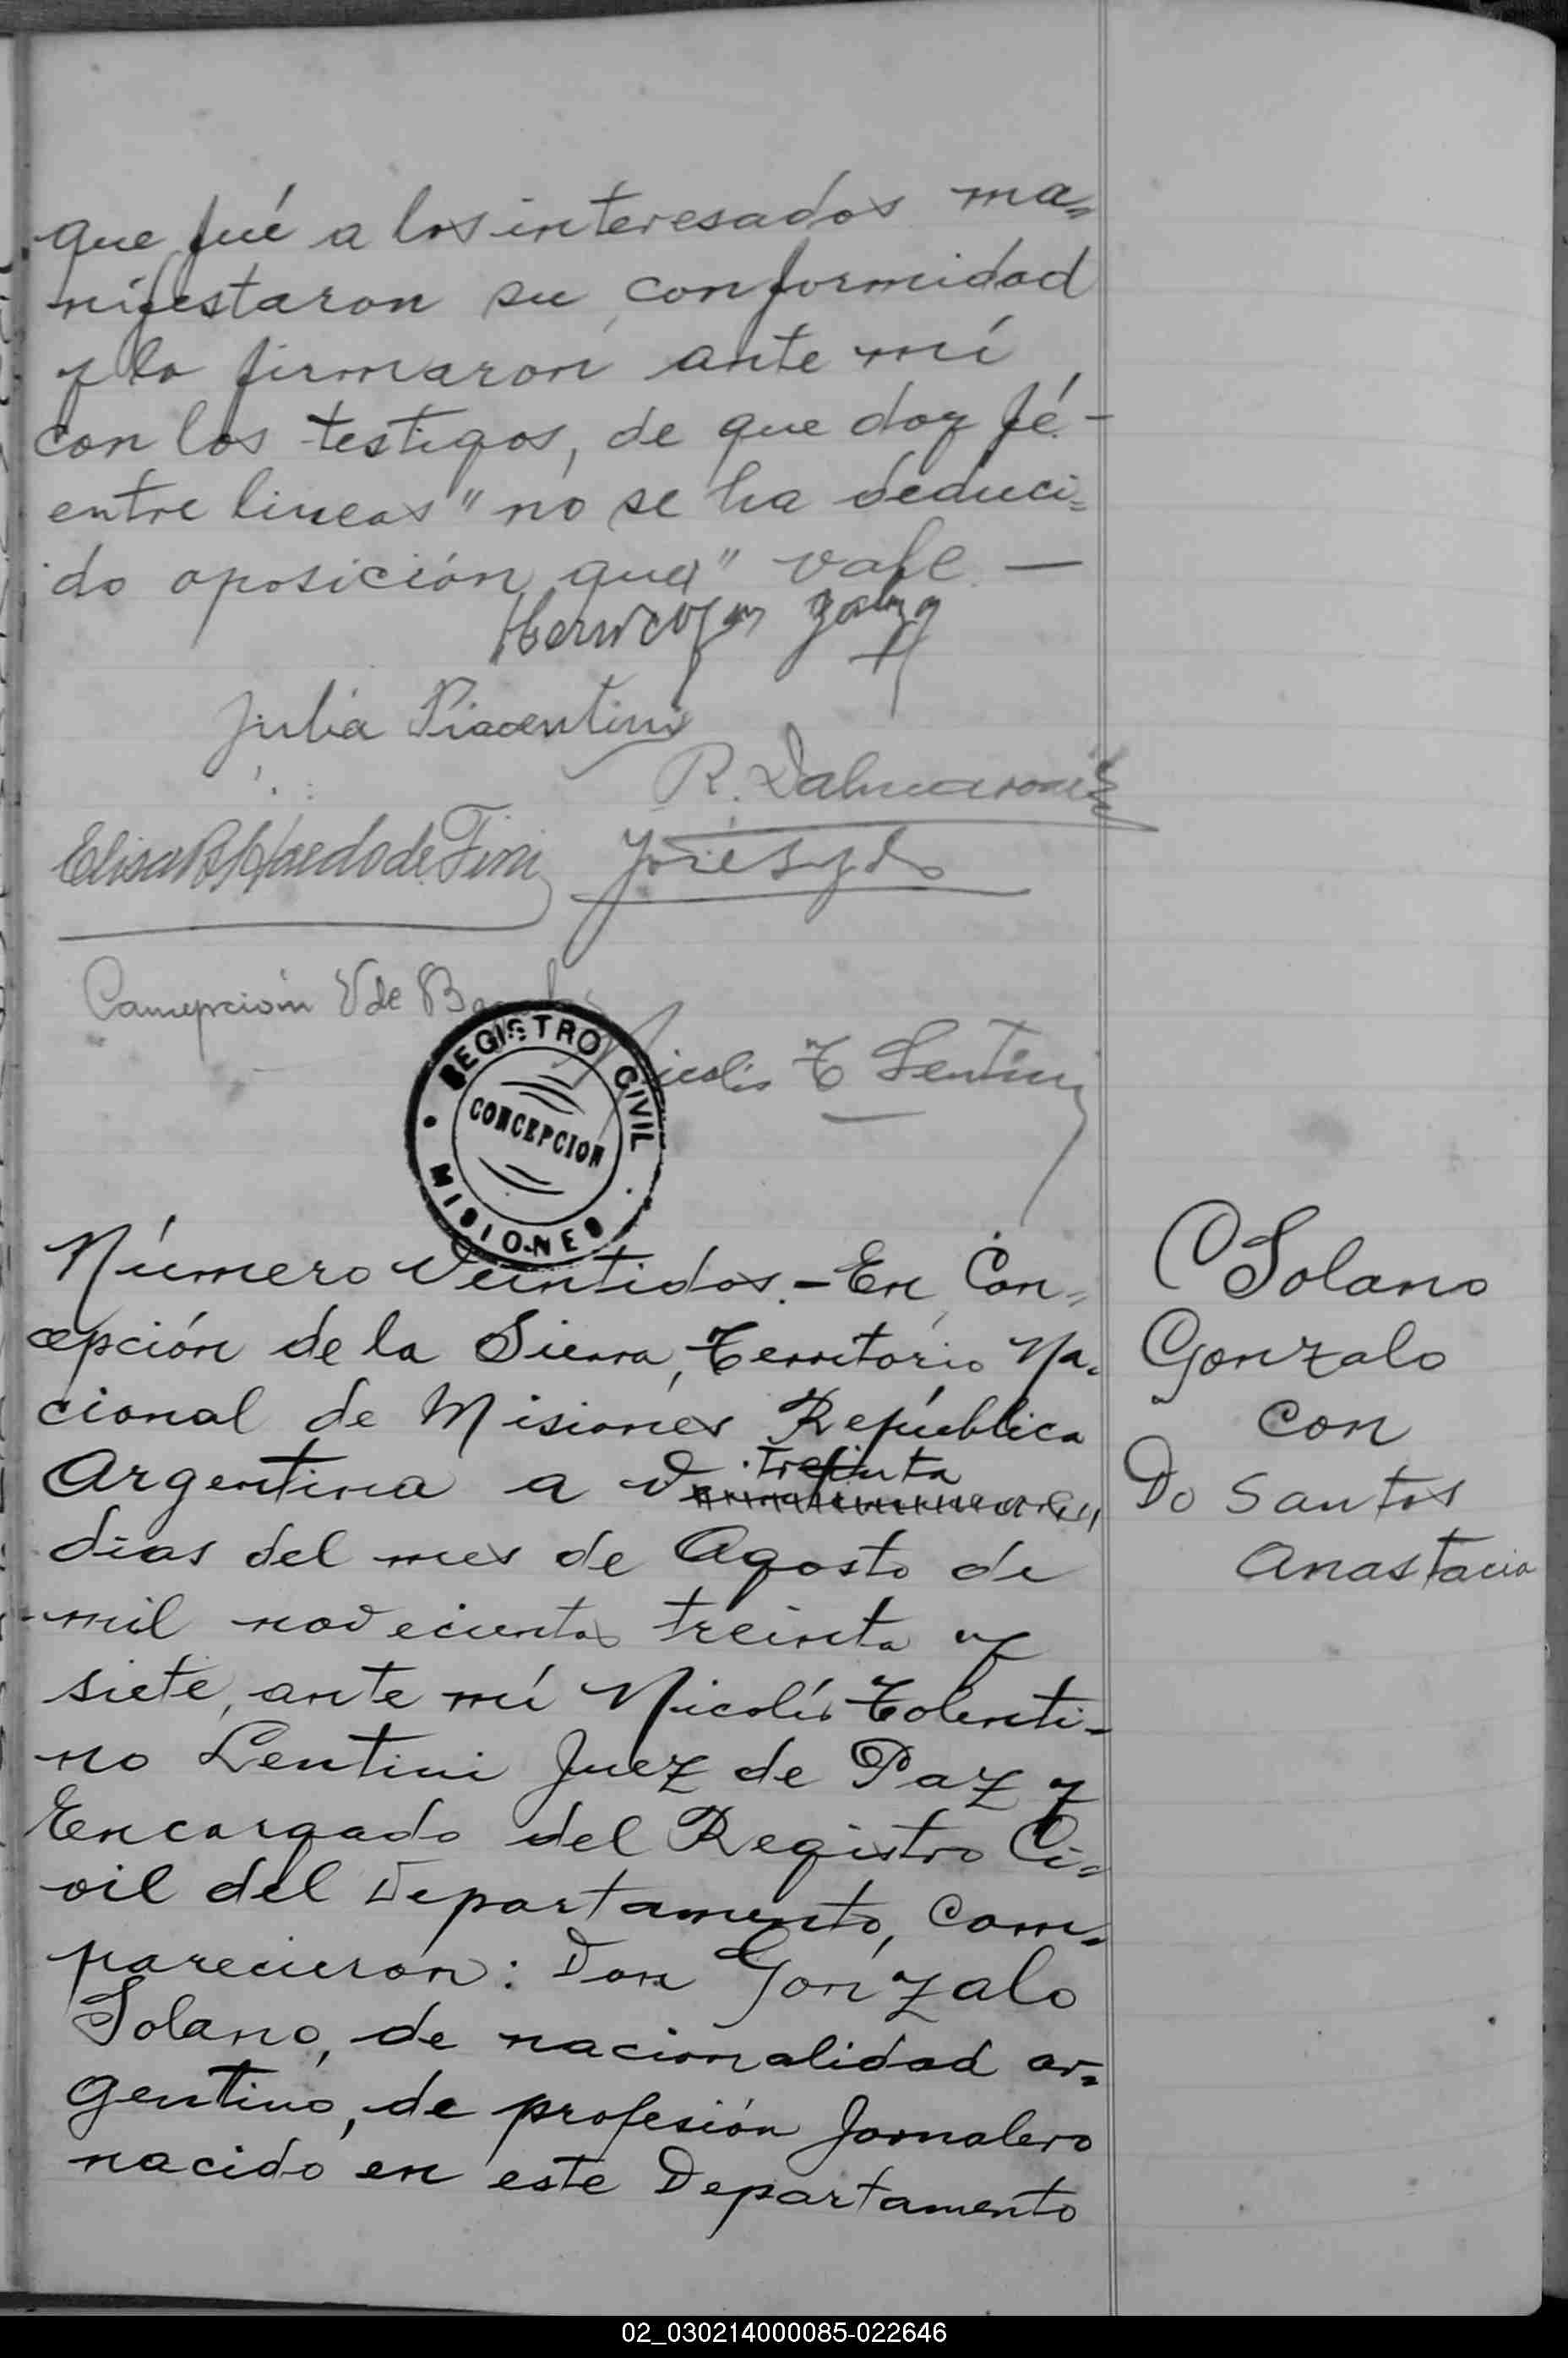 que fué a los interesados ma-
nifestaron su conformidad
y la firmaron ante mí
con los testigos, de que doy fé. -
entre lineas "no se ha deduci=
do oposición que" vale. —
Julia Piacentini
R. Dalmaroniz
Elisa B Haedo de Fini
José
Concepción V de
Nicolás T Lentini
REGISTRO CIVIL
CONCEPCION
MISIONES
Número Veintidos. - En Con=
cepción de la Sierra, Territorio Na-
cional de Misiones República
treinta
Argentina a
dias del mes de Agosto de
mil novecientos treinta y
siete, ante mí Nicolás Tolenti-
no Lentini Juez de Paz y
Encargado del Registro Ci=
vil del Departamento, Com=
parecieron: Don Gonzalo
Solano, de nacionalidad ar=
gentino, de profesión Jornalero
nacido en este Departamento
Solano
Gonzalo
con
Do Santos
Anastacia
02_030214000085-022646